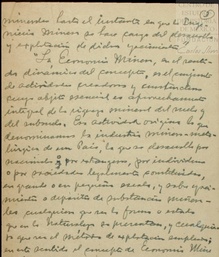 minerales hasta el instante en que la Inge-
niería Minera se hace cargo del desarrollo
y explotación de dichos yacimientos".
"La Economía Minera, en el sentido
dinámico del concepto, es el conjunto
de actividades creadoras y constructivas
cuyo objeto esencial es aprovechamiento
integral de la riqueza mineral del suelo y
del subsuelo. Esa actividad origina lo que
denominamos la industria minera-metalúrgica
de un País, la que se desarrolla por
nacionales o por extranjeros, por individuos
o por sociedades legalmente constituidas,
en grande o en pequeña escala, y sobre yaci-
mientos o depósitos de substancias minera-
les cualquiera que sea la forma o estado
que en la Naturaleza se presentan, y cualquiera
que sea el método de explotación empleado;
en este sentido el concepto de Economía Mine